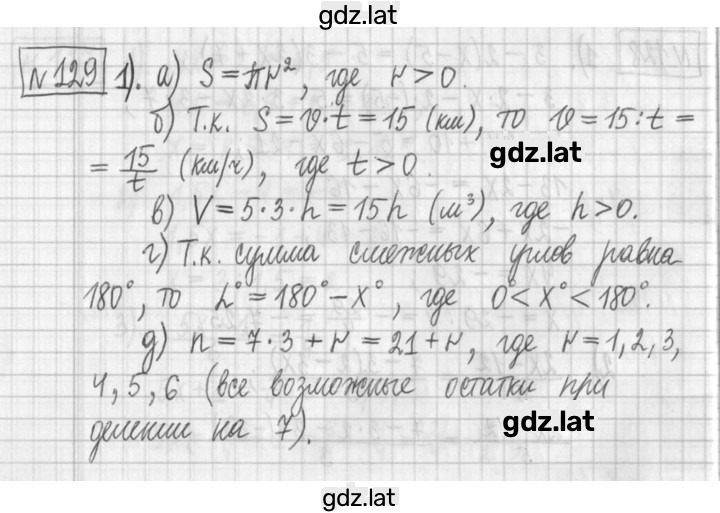 gdz.lat
№129 1). а) S=πr², где r>0.
б) Т.к. S=υ·t=15 (км), то υ=15:t=
gdz.lat
=15/t (км/ч), где t>0.
в) V=5·3·h=15h (м³), где h>0.
г) Т.к. сумма смежных углов равна
180°, то L°=180°-X°, где 0°<X°<180°.
д) n=7·3+r=21+r, где r=1,2,3,
4,5,6 (все возможные остатки при
делении на 7).
gdz.lat
gdz.lat